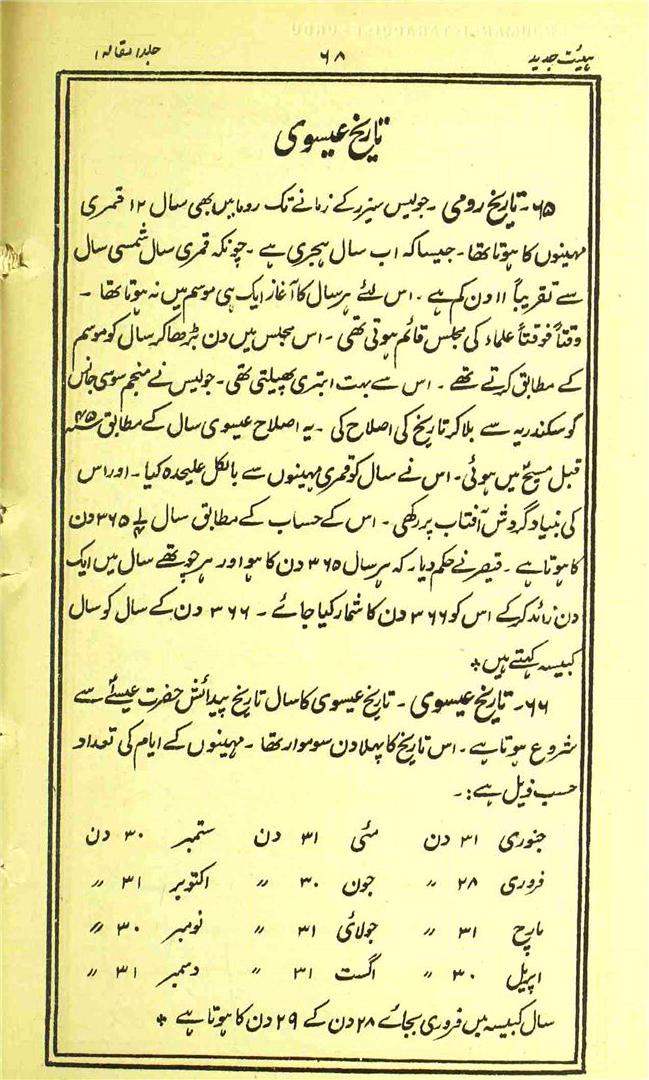 ہیئت جدید ۶۸ جلد ۱ مقالہ ۱
تاریخ عیسوی
۶۵۔ تاریخ رومی ۔ جولیس سیزر کے زمانے تک روما میں بھی سال ۱۲ قمری
مہینوں کا ہوتا تھا ۔ جیسا کہ اب سال ہجری ہے ۔ چونکہ قمری سال شمسی سال
سے تقریباً ۱۱ دن کم ہے ۔ اس لئے ہر سال کا آغاز ایک ہی موسم میں نہ ہوتا تھا ۔
وقتاً فوقتاً علماء کی مجلس قائم ہوتی تھی ۔ اس مجلس میں دن بڑھا کر سال کو موسم
کے مطابق کرتے تھے ۔ اس سے بہت ابتری پھیلتی تھی ۔ جولیس نے منجم سوسی جانس
کو سکندریہ سے بلا کر تاریخ کی اصلاح کی ۔ یہ اصلاح عیسوی سال کے مطابق ۴۵ سنہ
قبل مسیحؑ میں ہوئی ۔ اس نے سال کو قمری مہینوں سے بالکل علیحدہ کیا ۔ اور اس
کی بنیاد گردش آفتاب پر رکھی ۔ اس کے حساب کے مطابق سال ۳۶۵¼ دن
کا ہوتا ہے ۔ قیصر نے حکم دیا ۔ کہ ہر سال ۳۶۵ دن کا ہو اور ہر چوتھے سال میں ایک
دن زائد کر کے اس کو ۳۶۶ دن کا شمار کیا جائے ۔ ۳۶۶ دن کے سال کو سال
کبیسہ کہتے ہیں *
۶۶۔ تاریخ عیسوی ۔ تاریخ عیسوی کا سال تاریخ پیدائش حضرت عیسےٰؑ سے
شروع ہوتا ہے ۔ اس تاریخ کا پہلا دن سوموار تھا ۔ مہینوں کے ایام کی تعداد
حسب ذیل ہے :۔
جنوری ۳۱ دن مئی ۳۱ دن ستمبر ۳۰ دن
فروری ۲۸ ״ جون ۳۰ ״ اکتوبر ۳۱ ״
مارچ ۳۱ ״ جولائی ۳۱ ״ نومبر ۳۰ ״
اپریل ۳۰ ״ اگست ۳۱ ״ دسمبر ۳۱ ״
سال کبیسہ میں فروری بجائے ۲۸ دن کے ۲۹ دن کا ہوتا ہے *